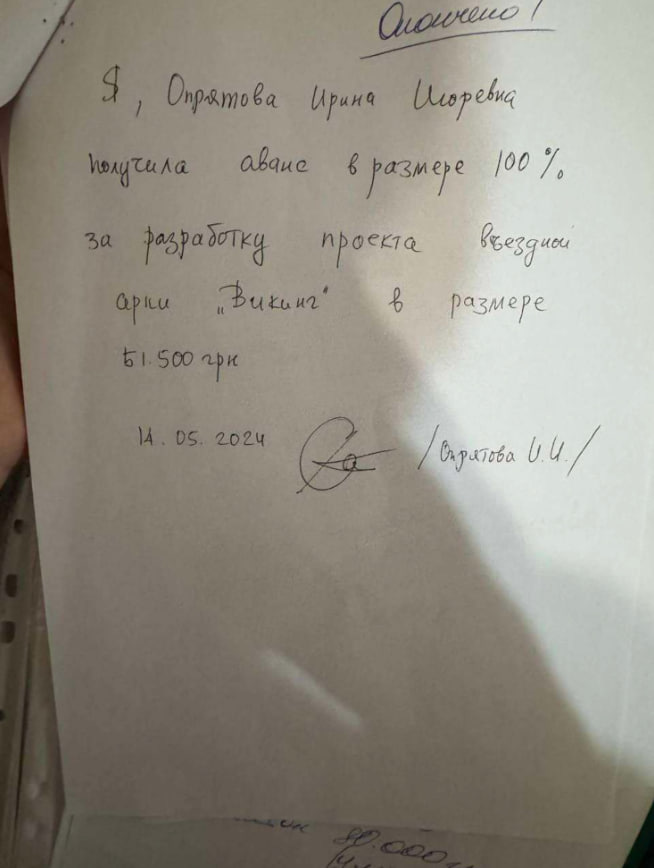 Оплачено!
Я, Опрятова Ирина Игоревна
получила аванс в размере 100%
за разработку проекта въездной
арки „Викинг“ в размере
51.500 грн
14.05.2024 /Опрятова И.И./
80.000